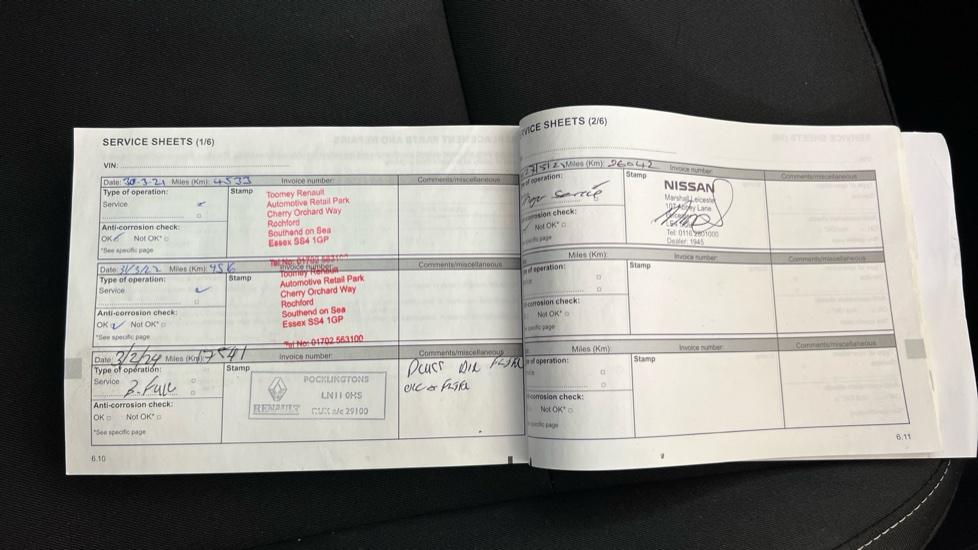 SERVICE SHEETS (1/6)
VIN:
Date: 30-3-21 Miles (Km): 4533 Invoice number: Comments/miscellaneous
Type of operation: Stamp
Service
Toomey Renault
Automotive Retail Park
Cherry Orchard Way
Rochford
Southend on Sea
Essex SS4 1GP
Anti-corrosion check:
OK Not OK*
*See specific page
Tel No: 01702 563100
Date: 31/3/22 Miles (Km): Invoice number: Comments/miscellaneous
Type of operation: Stamp
Service
Toomey Renault
Automotive Retail Park
Cherry Orchard Way
Rochford
Southend on Sea
Essex SS4 1GP
Tel No: 01702 563100
Anti-corrosion check:
OK Not OK*
*See specific page
Date: 3/2/24 Miles (Km): 17541 Invoice number: Comments/miscellaneous
Type of operation: Stamp
Service
Full
POCKLINGTONS
LN11 0HS
RENAULT
a/c 29100
Anti-corrosion check:
OK Not OK*
*See specific page
6.10
VICE SHEETS (2/6)
Miles (Km): 26042 Invoice number: Comments/miscellaneous
of operation: Stamp
NISSAN
Marshall Leicester
Abbey Lane
Tel: 0116
Dealer: 1945
orrosion check:
Not OK*
specific page
Miles (Km): Invoice number: Comments/miscellaneous
of operation: Stamp
corrosion check:
Not OK*
specific page
Miles (Km): Invoice number: Comments/miscellaneous
of operation: Stamp
corrosion check:
Not OK*
specific page
6.11